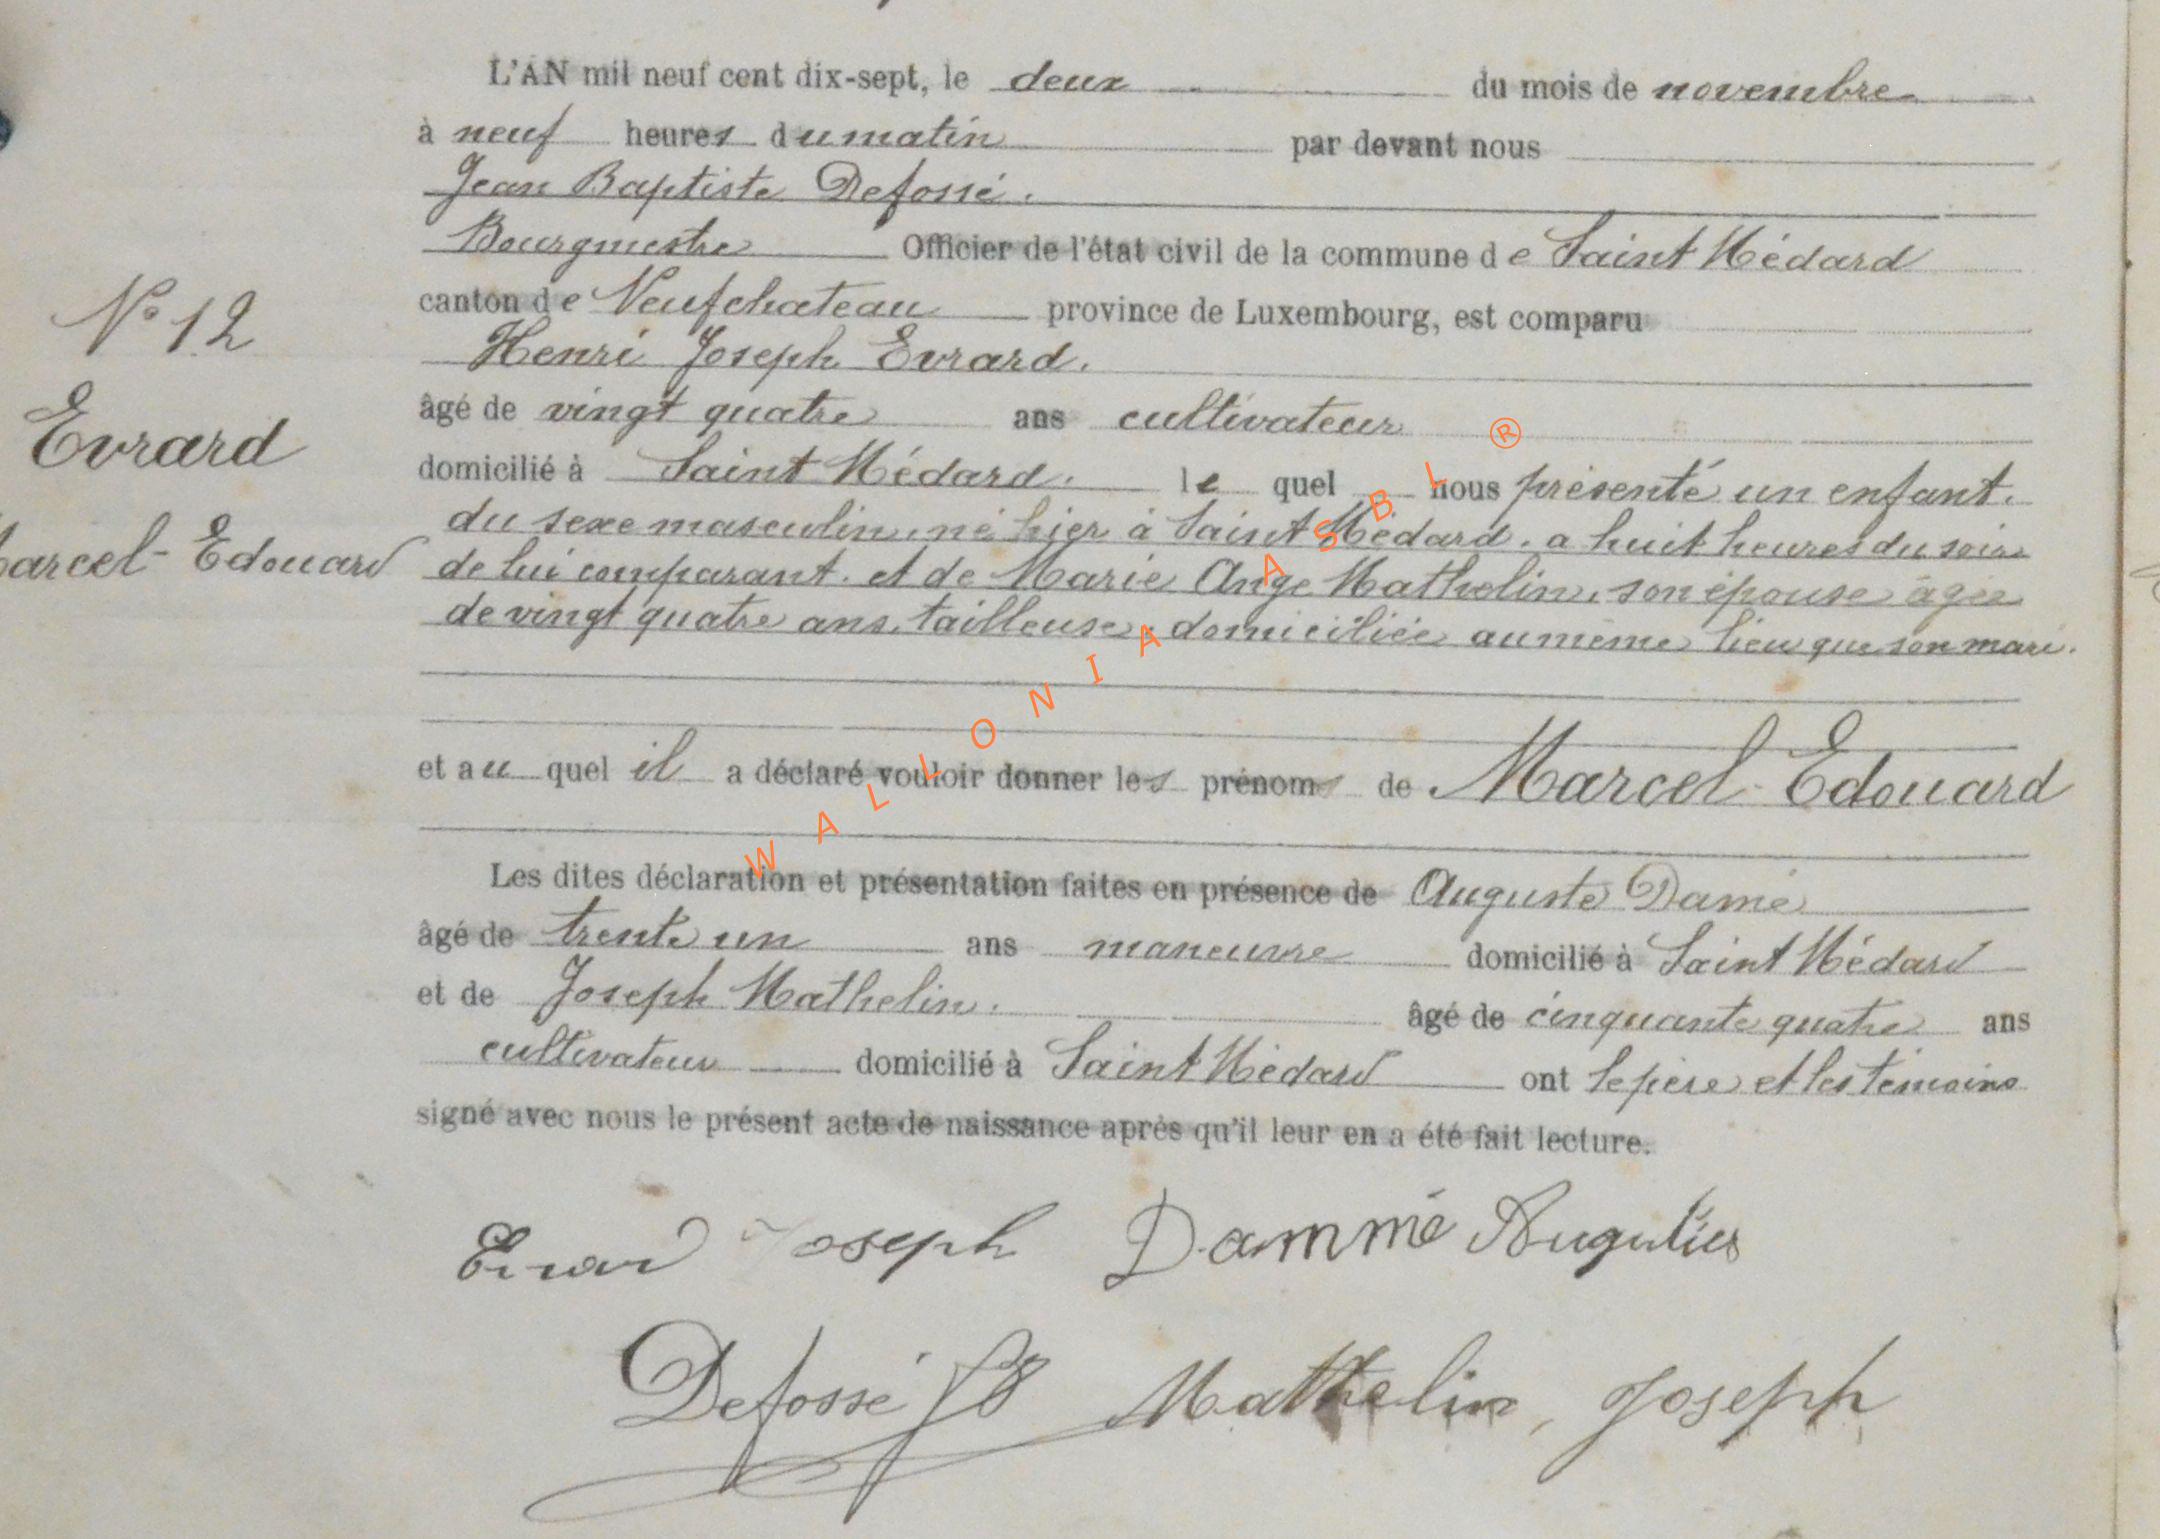 L'AN mil neuf cent dix-sept, le deux du mois de novembre
à neuf heures du matin par devant nous
Jean Baptiste Defossé.
Bourgmestre Officier de l'état civil de la commune de Saint Médard
canton de Neufchateau province de Luxembourg, est comparu
Henri Joseph Evrard.
âgé de vingt quatre ans cultivateur
domicilié à Saint Médard. le quel nous présente un enfant.
du sexe masculin, né hier à Saint Médard. a huit heures du soir
de lui comparant. et de Marie Ange Mathelin, son épouse âgée
de vingt quatre ans, tailleuse, domiciliée au même lieu que son mari.
et au quel il a déclaré vouloir donner les prénoms de Marcel-Edouard
Les dites déclaration et présentation faites en présence de Auguste Damé
âgé de trente un ans maneuvre domicilié à Saint Médard
et de Joseph Mathelin. âgé de cinquante quatre ans
cultivateur domicilié à Saint Médard ont le père et les témoins
signé avec nous le présent acte de naissance après qu'il leur en a été fait lecture.
N° 12
Evrard
Marcel-Edouard
Evrard Joseph Dammé
Defossé JB Mathelin, Joseph
WALLONIA ASBL ®